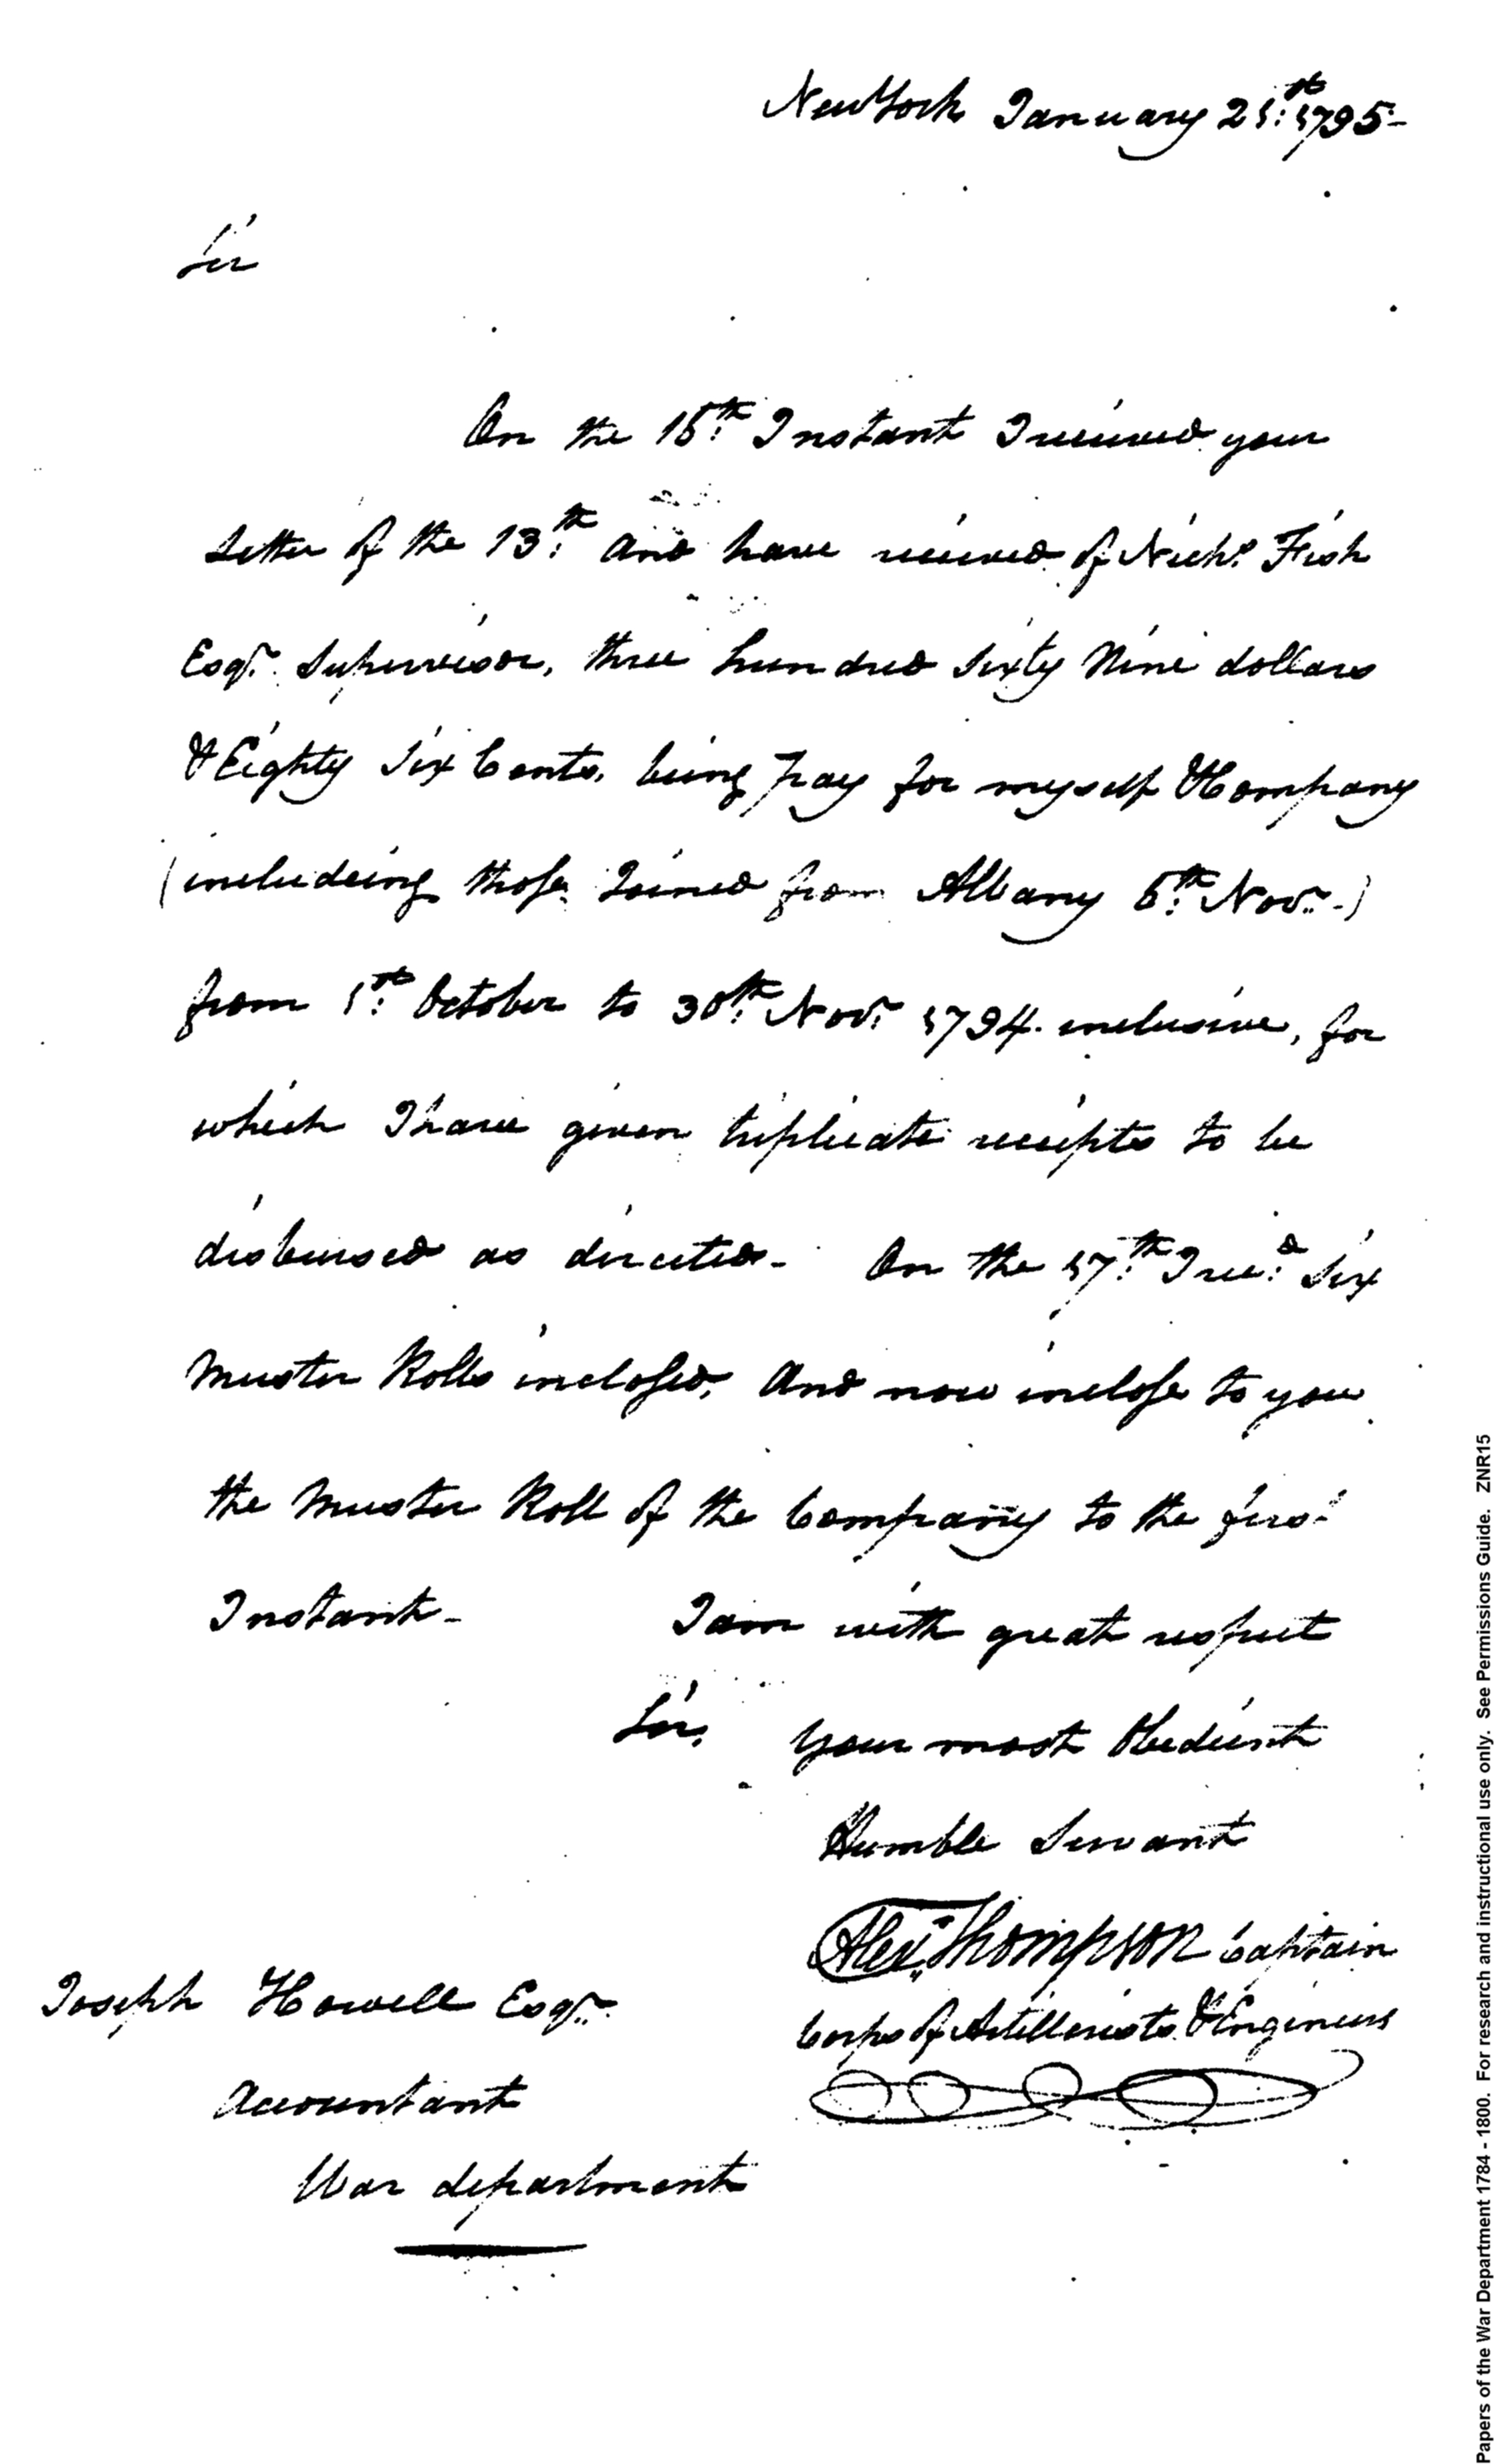 New York January 21:st 1795-
Sir
On the 15:th Instant I received your
Letter of the 13:th and have received of Nichs. Fish
Esqr. Supervisor, three hundred sixty Nine dollars
& Eighty Six Cents, being pay for myself & Company
(includeing those Joined from Albany 5:th Novr.-)
from 1:st October to 30:th Novr. 1794. inclusive, for
which I have given triplicate receipts to be
disbursed as directed- On the 17:th I recd. Six
Muster Rolls inclosed, and now inclose to you
the Muster Roll of the Company to the first
Instant- I am with great respect
Sir, your most Obedient
Humble Servant
Alexr. Thompson Captain
Corps of Artillerists & Engineers
Joseph Howell Esqr.
Accountant
War department
Papers of the War Department 1784 - 1800. For research and instructional use only. See Permissions Guide. ZNR15